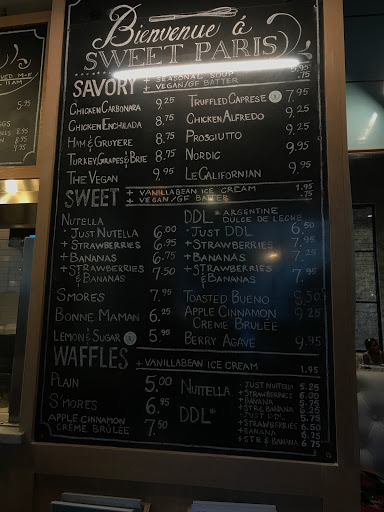 Bienvenue á
SWEET PARIS
SAVORY + SEASONAL SOUP 5.95
+ VEGAN/GF BATTER .75
CHICKEN CARBONARA 9.25
CHICKEN ENCHILADA 8.75
HAM & GRUYERE 8.75
TURKEY, GRAPES & BRIE 8.75
THE VEGAN 9.95
TRUFFLED CAPRESE 7.95
CHICKEN ALFREDO 9.25
PROSCIUTTO 9.25
NORDIC 9.95
LE CALIFORNIAN 9.95
SWEET + VANILLABEAN ICE CREAM 1.95
+ VEGAN/GF BATTER .75
NUTELLA
· JUST NUTELLA 6.00
+ STRAWBERRIES 6.95
+ BANANAS 6.75
+ STRAWBERRIES & BANANAS 7.50
S'MORES 7.95
BONNE MAMAN 6.25
LEMON & SUGAR 5.95
DDL* *ARGENTINE
DULCE DE LECHE
· JUST DDL 6.50
+ STRAWBERRIES 7.95
+ BANANAS 7.25
+ STRAWBERRIES & BANANAS 7.95
TOASTED BUENO 8.50
APPLE CINNAMON 9.25
CREME BRULEE
BERRY AGAVE 9.95
WAFFLES + VANILLABEAN ICE CREAM 1.95
PLAIN 5.00
S'MORES 6.95
APPLE CINNAMON
CRÈME BRÛLÉE 7.50
NUTELLA · JUST NUTELLA 5.25
+ STRAWBERRIES 6.00
+ BANANA 5.75
+ STR & BANANA 6.25
DDL*
+ STRAWBERRIES 6.50
+ BANANA 6.25
+ STR & BANANA 6.75
5.95